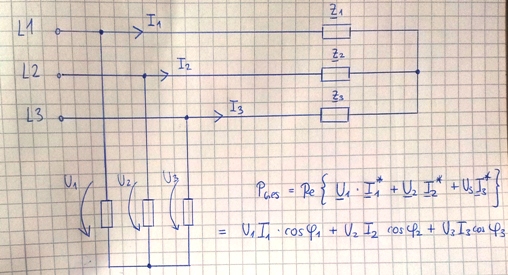 L1 I1 Z1
L2 I2 Z2
L3 I3 Z3
U1 U2 U3
Pges = Re { U1 · I1* + U2 I2* + U3 I3* }
= U1 I1 · cos φ1 + U2 I2 cos φ2 + U3 I3 cos φ3